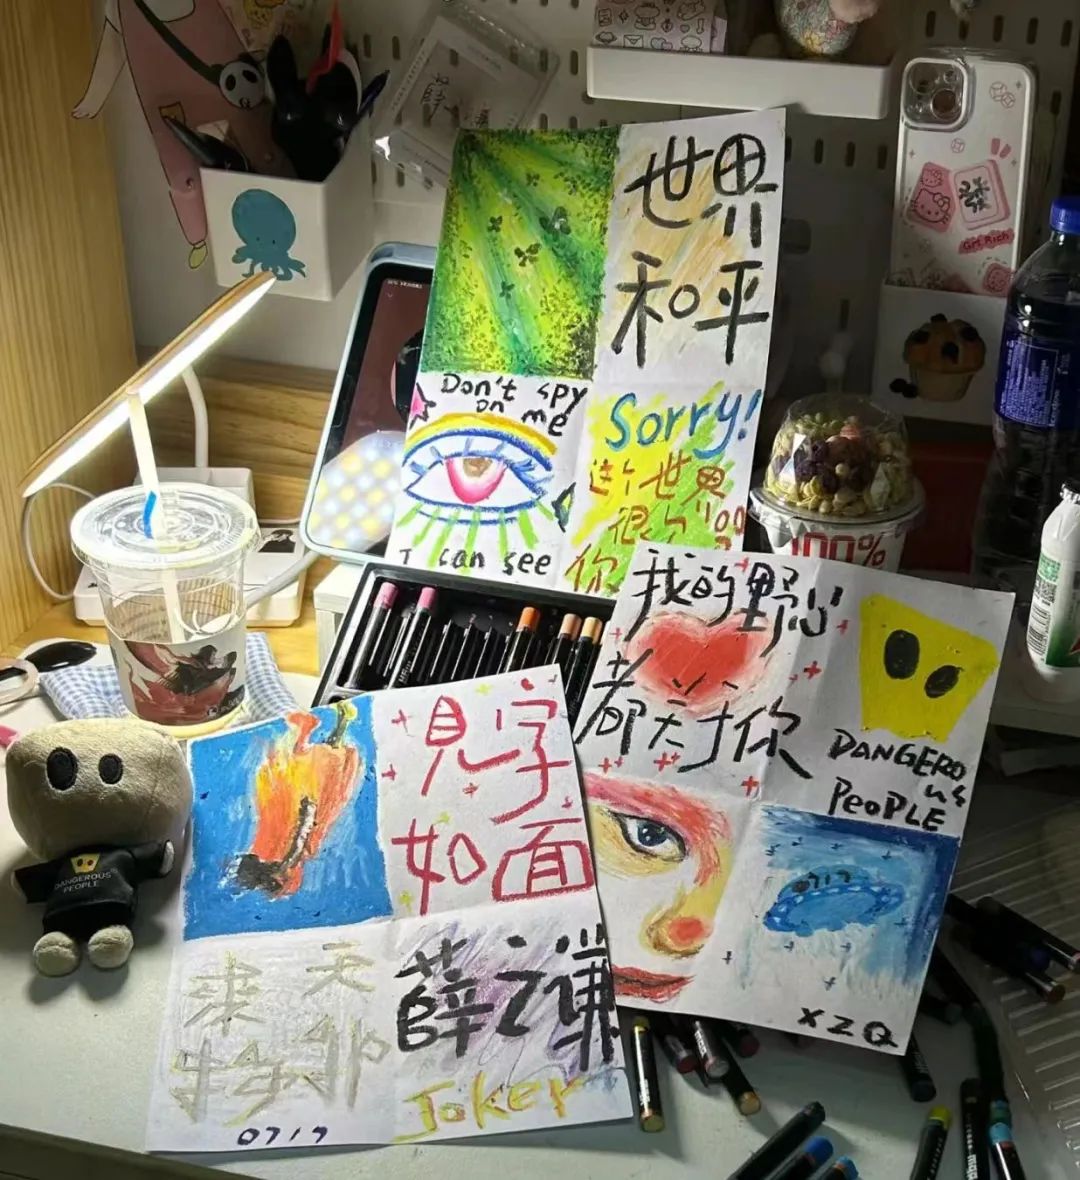 世界
和平
Don't spy
on me
I can see
Sorry!
这个世界
很
你
Girl Rich
100%
我的野心
都关于你
DANGERO
us
PEOPLE
0717
XZQ
見字
如面
薛之謙
Joker
天
来
外
物
0717
DANGEROUS
PEOPLE